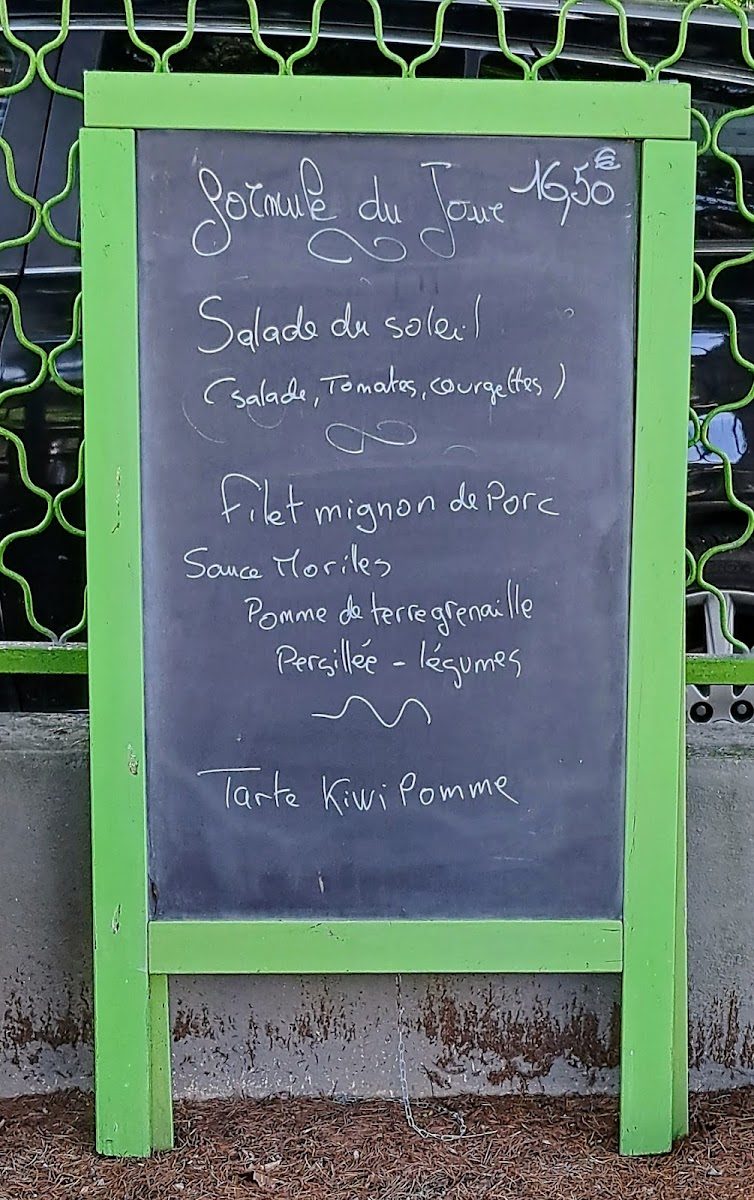 Formule du Jour 16,50€
Salade du soleil
(salade, Tomates, courgettes)
Filet mignon de Porc
Sauce Morilles
Pomme de terre grenaille
Persillée - légumes
Tarte Kiwi Pomme